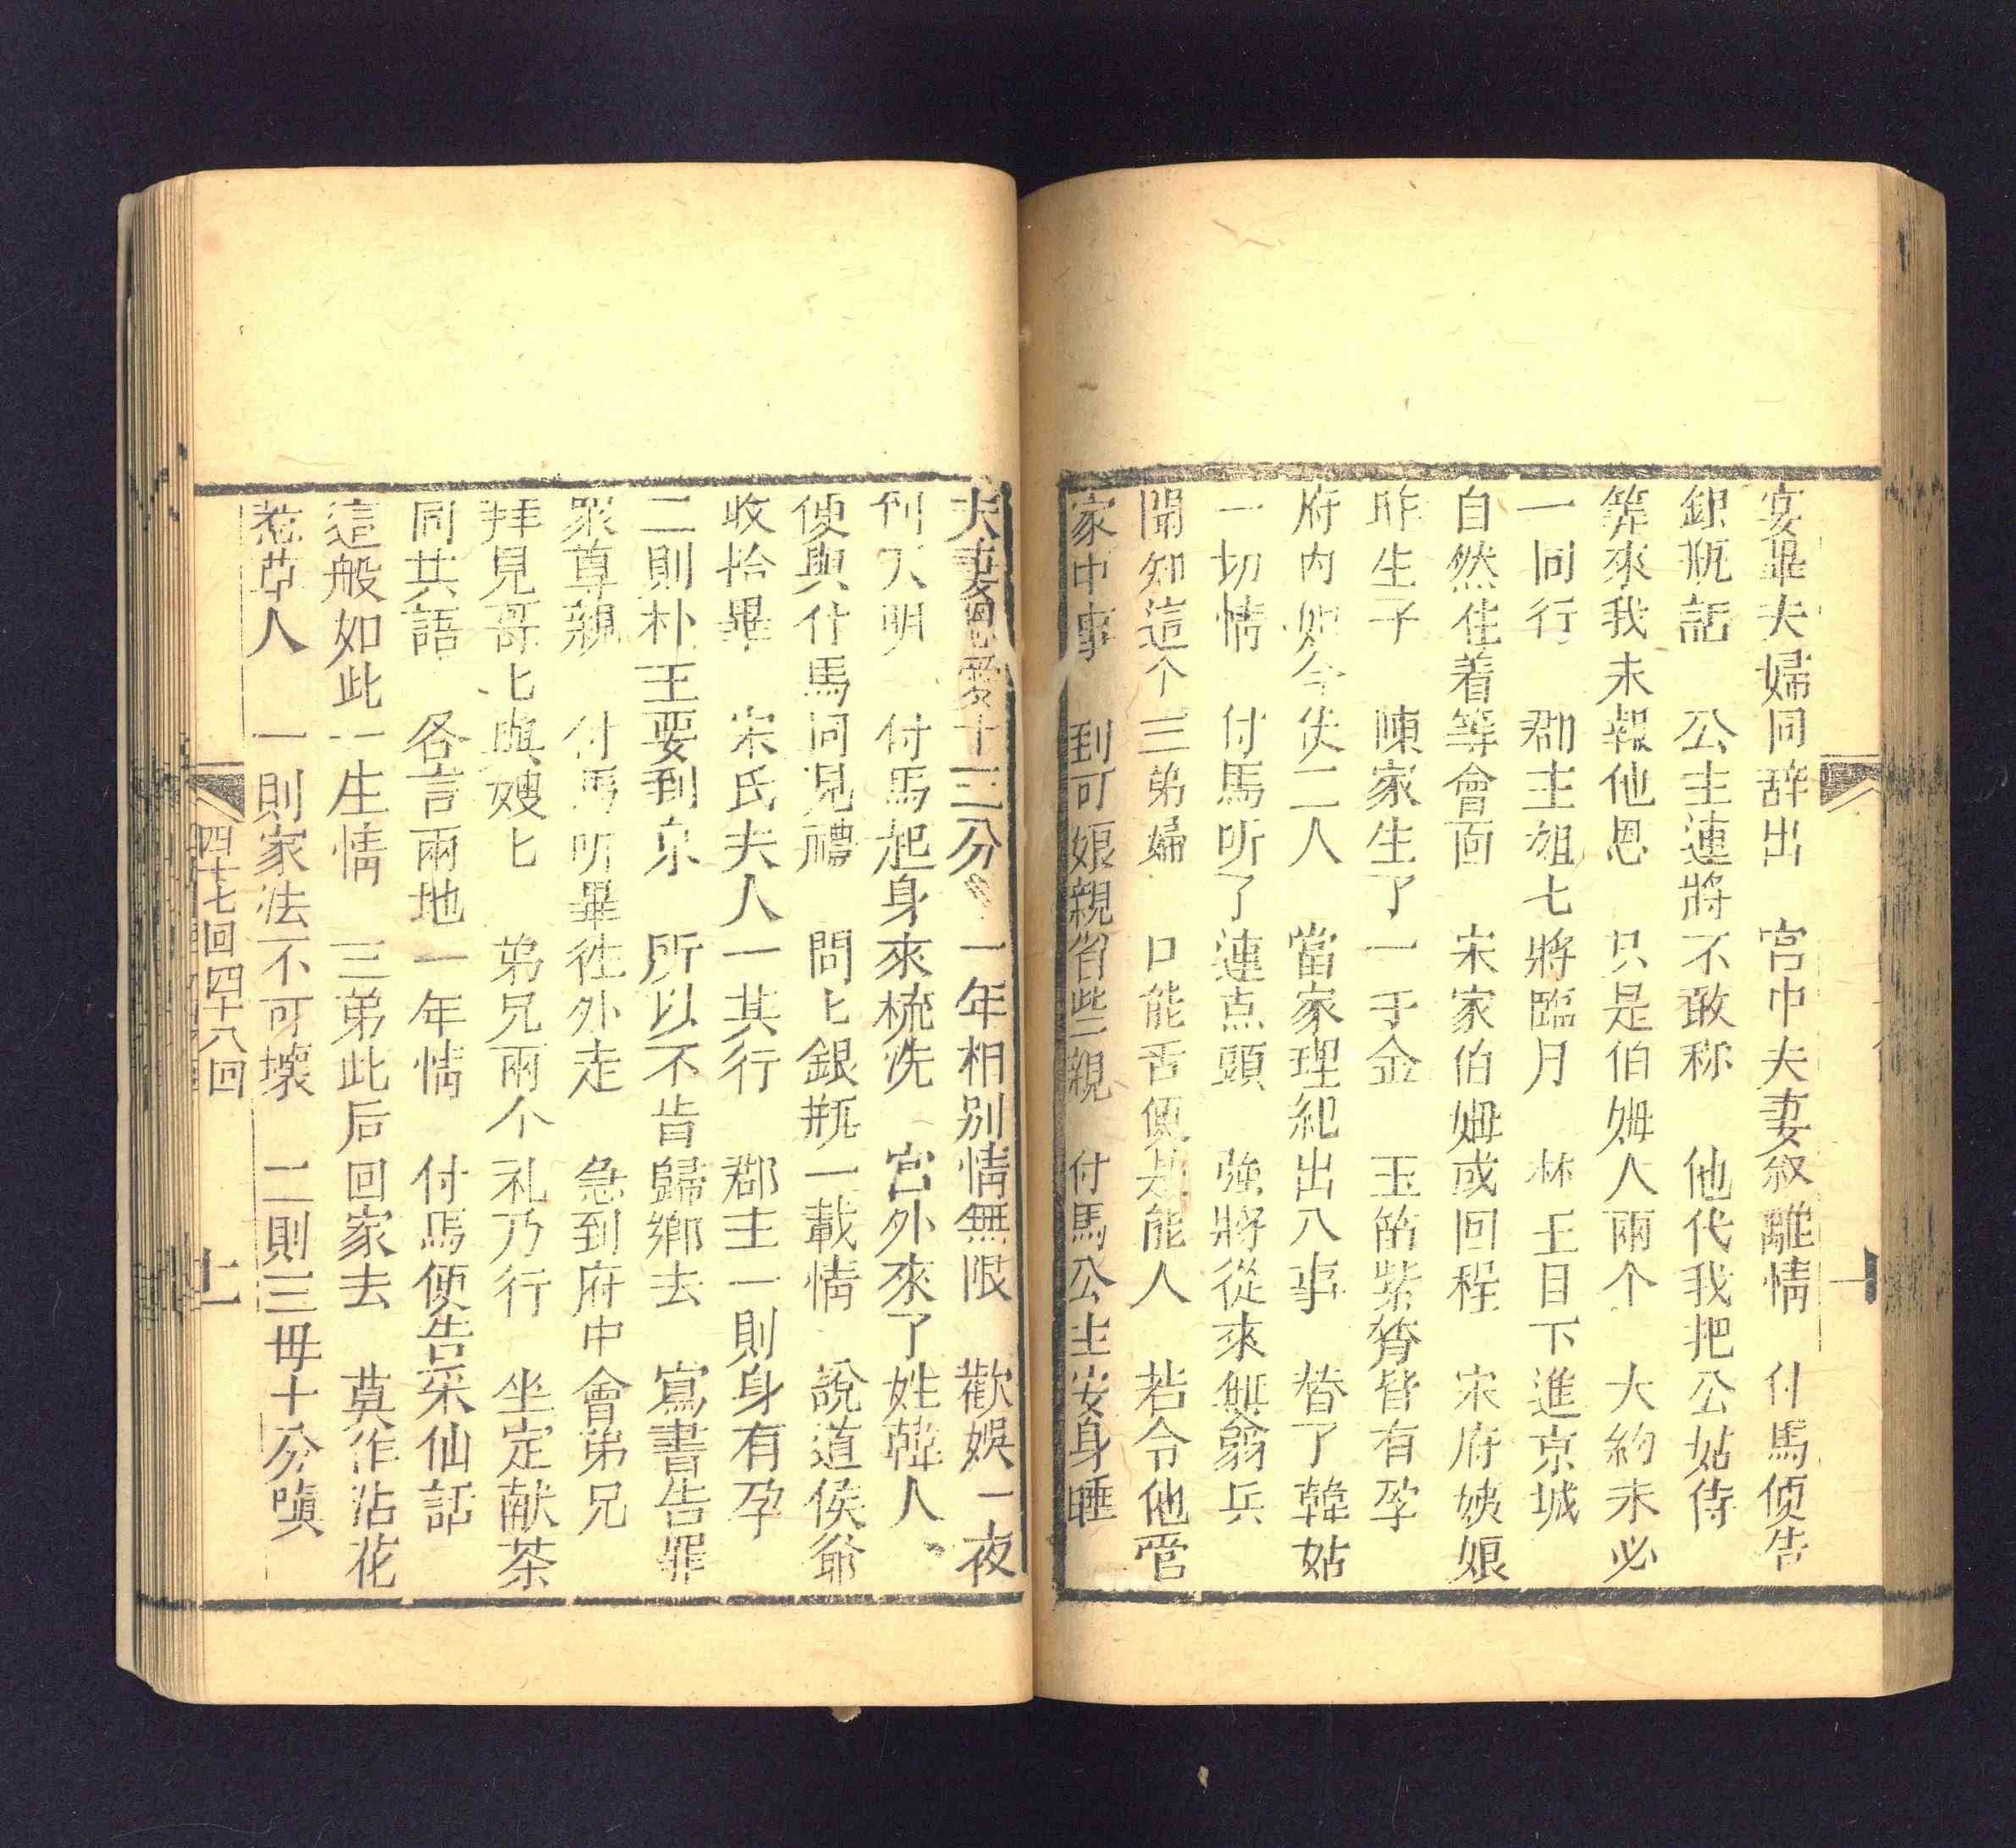 宴畢夫婦同辞出　宮中夫妻叙離情　付馬便告
銀瓶話　公主連將不敢称　他代我把公姑侍
筭來我未報他恩　只是伯姆人兩个　大約未必
一同行　郡主姐七將臨月　林王日下進京城
自然住着等會面　宋家伯姆或回程　宋府姨娘
昨生子　陳家生了一手金　玉笛紫簫皆有孕
府內如今失二人　當家理紀出入事　替了韓姑
一切情　付馬听了連点頭　強將從來無弱兵
聞知這个三弟婦　口能舌便是能人　若令他管
家中事　到可娘親省些親　付馬公主安身睡
夫妻恩愛十三分　一年相別情無限　歡娛一夜
到天明　付馬起身來梳洗　宮外來了姓韓人
便與付馬同見禮　問匕銀瓶一載情　說道侯爺
收拾畢　宋氏夫人一其行　郡主一則身有孕
二則朴王要到京　所以不肯歸鄉去　寫書告罪
衆尊親　付馬听畢徃外走　急到府中會弟兄
拜見哥匕與嫂匕　弟兄兩个礼乃行　坐定献茶
同共語　各言兩地一年情　付馬便告采仙話
這般如此一生情　三弟此后回家去　莫作沾花
惹草人　一則家法不可壞　二則三毋十分嗔
四十七回四十八回